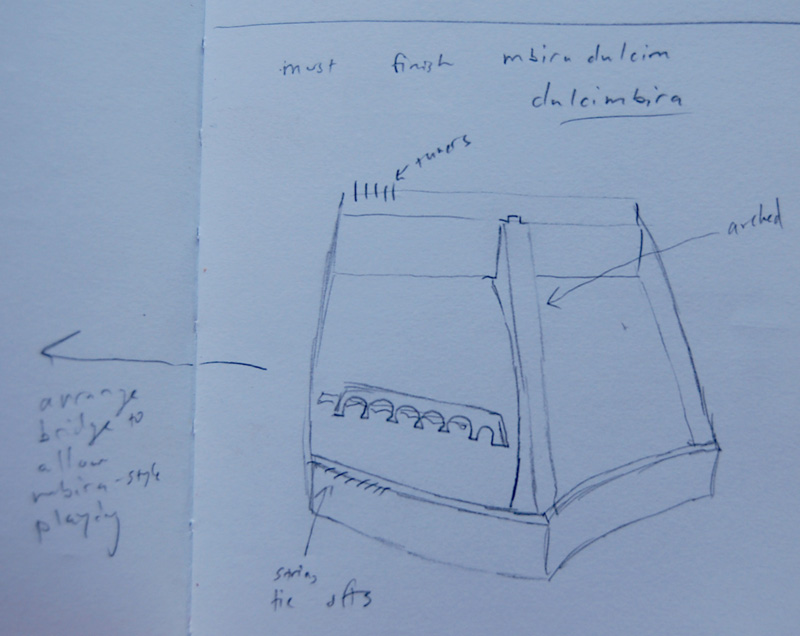 must finish mbira dulcim
dulcimbira
tuners
arched
arrange
bridge to
allow
mbira-style
playing
string
tie offs